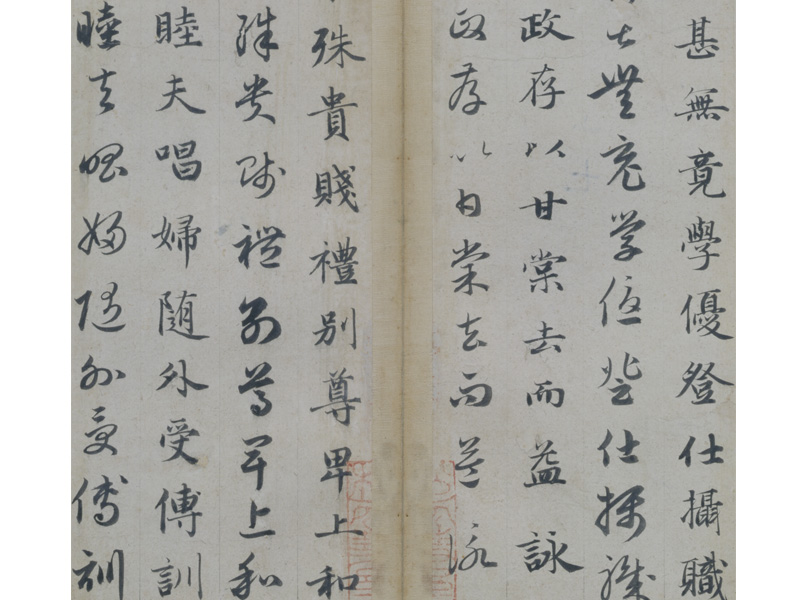 甚無竟學優登仕攝職
甚無竟學優登仕攝職
政存以甘棠去而益詠
政存以甘棠去而益詠
殊貴賤禮别尊卑上和
殊貴賤禮别尊卑上和
睦夫唱婦随外受傅訓
睦夫唱婦随外受傅訓